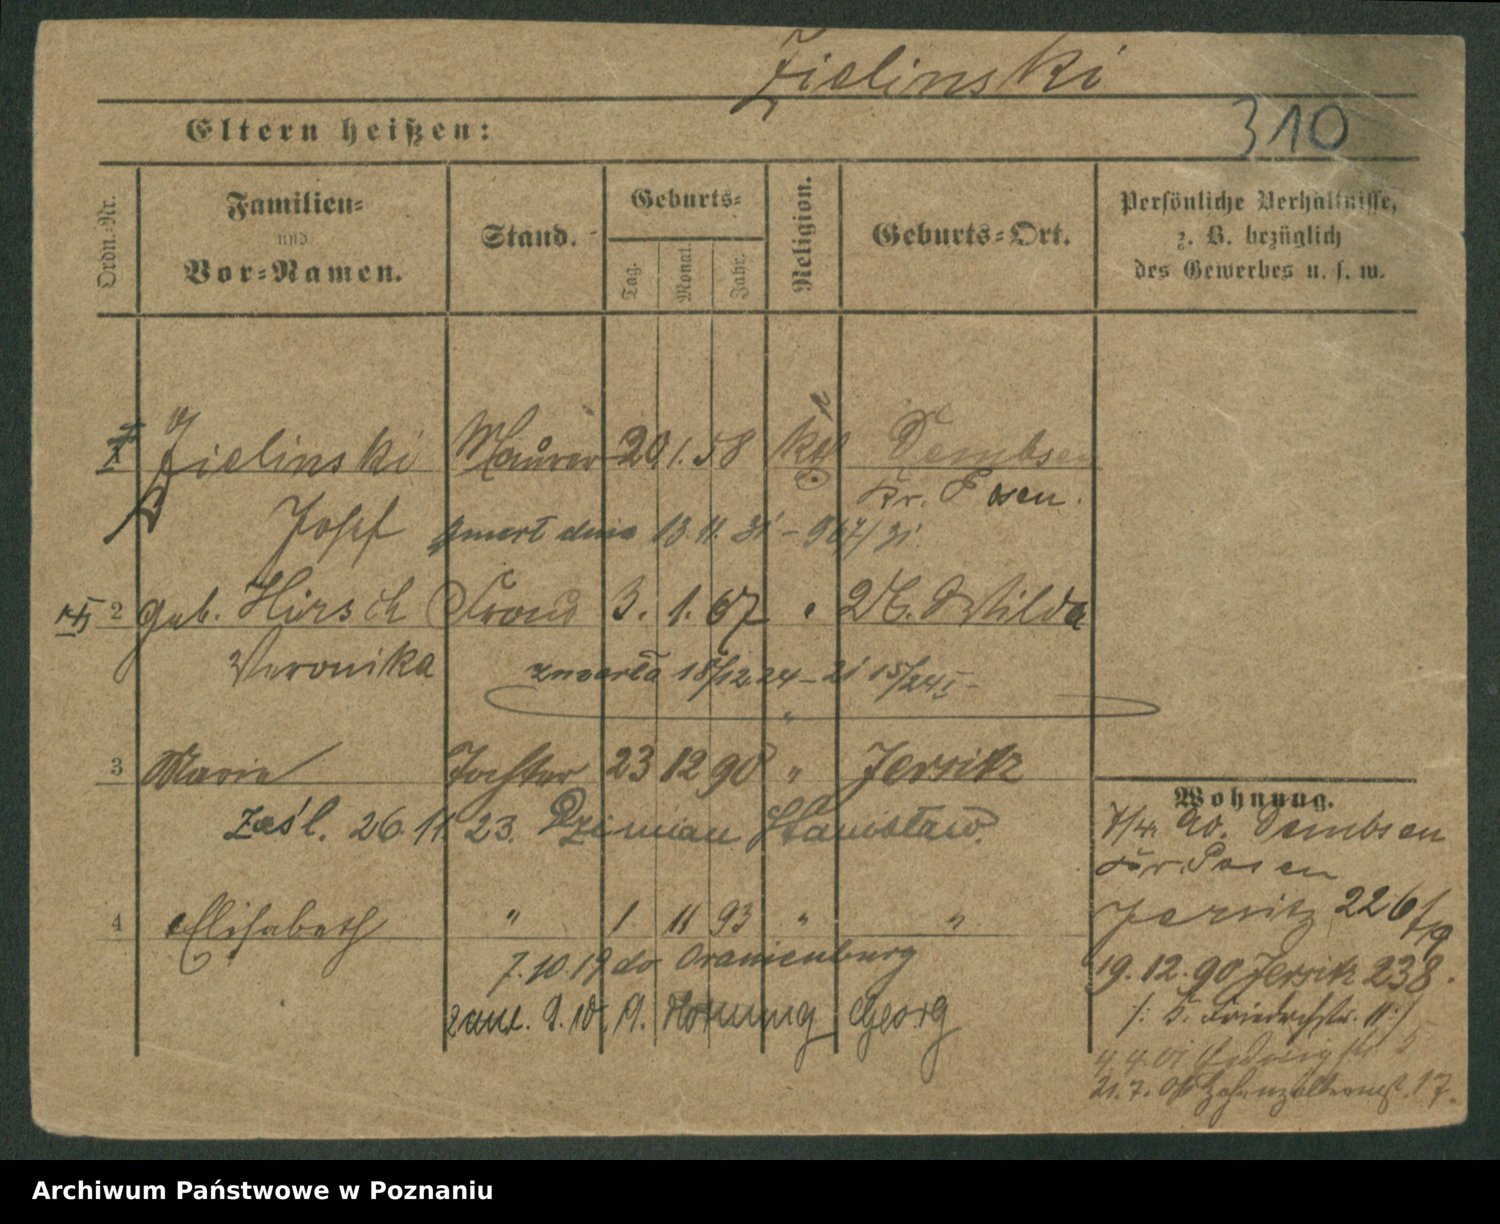 Zielinski
310
Eltern heißen:
Ordn.-Nr.
Familien-
und
Vor-Namen.
Stand.
Geburts-
Tag.
Monat.
Jahr.
Religion.
Geburts-Ort.
Persönliche Verhältnisse,
z. B. bezüglich
des Gewerbes u. s. w.
Zielinski Maurer 20 1. 58 kth Dembsen
Kr. Posen.
Josef zmarł dnia 13. 11. 31 – 967/31
2 geb. Hirsch Frau 3. 1. 67 " Wilda
Veronika zmarła 18/12 24 – 2115/24
3 Marie Tochter 23 12 90 " Jersitz
Zaśl. 26. 11. 23. Dzimian Stanisław.
4 Elisabeth " 1 11 93 " "
7. 10 19 do Oranienburg
zam. 9. 10. 19. Hornung Georg
Wohnung.
7/4. 90. Dembsen
Kr. Posen
Jersitz 226
19. 12. 90 Jersitz 238.
/: Friedrichstr. 11 :/
4. 4. 01 Hedwigstr 5
21. 7. Hohenzollernst. 17.
Archiwum Państwowe w Poznaniu